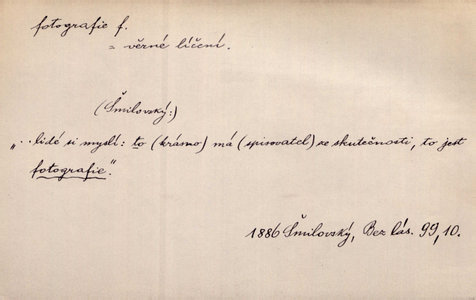 fotografie f.
= věrné líčení.
(Šmilovský:)
„..lidé si myslí: to (krásno) má (spisovatel) ze skutečnosti, to jest
fotografie".
1886 Šmilovský, Bez lás. 99, 10.